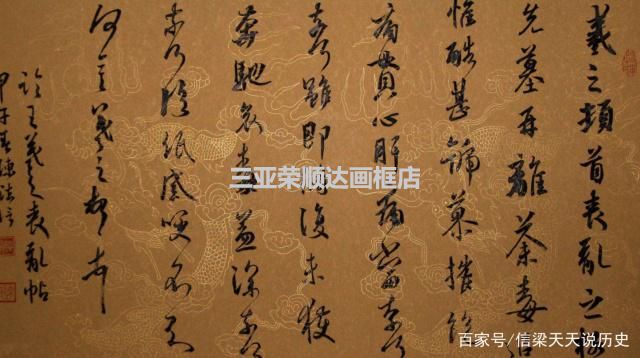 羲之頓首喪亂之極
先墓再離荼毒追
惟酷甚號慕摧絕
痛貫心肝痛當奈何
奈何雖即脩復未獲
奔馳哀毒益深奈何
奈何臨紙感哽不知
何言羲之頓首
臨王羲之喪亂帖
甲午春陳
三亚荣顺达画框店
百家号/信梁天天说历史